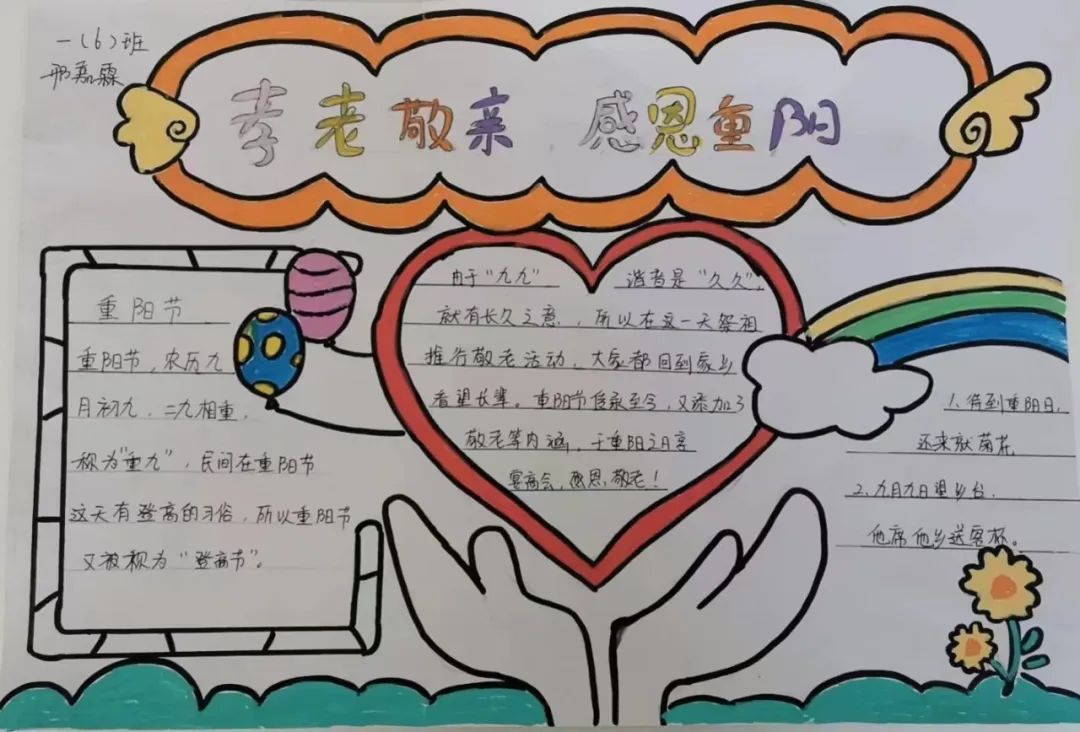 一(6)班
邢嘉霖
孝老敬亲 感恩重阳
重阳节
重阳节，农历九
月初九，二九相重，
称为"重九"，民间在重阳节
这天有登高的习俗，所以重阳节
又被称为"登高节"。
由于"九九" 谐音是"久久"，
就有长久之意，所以在这一天祭祖
推行敬老活动，大家都回到家乡
看望长辈。重阳节传承至今，又添加了
敬老等内涵，于重阳之日享
宴高会，感恩敬老！
1、待到重阳日，
还来就菊花
2、九月九日望乡台，
他席他乡送客杯。